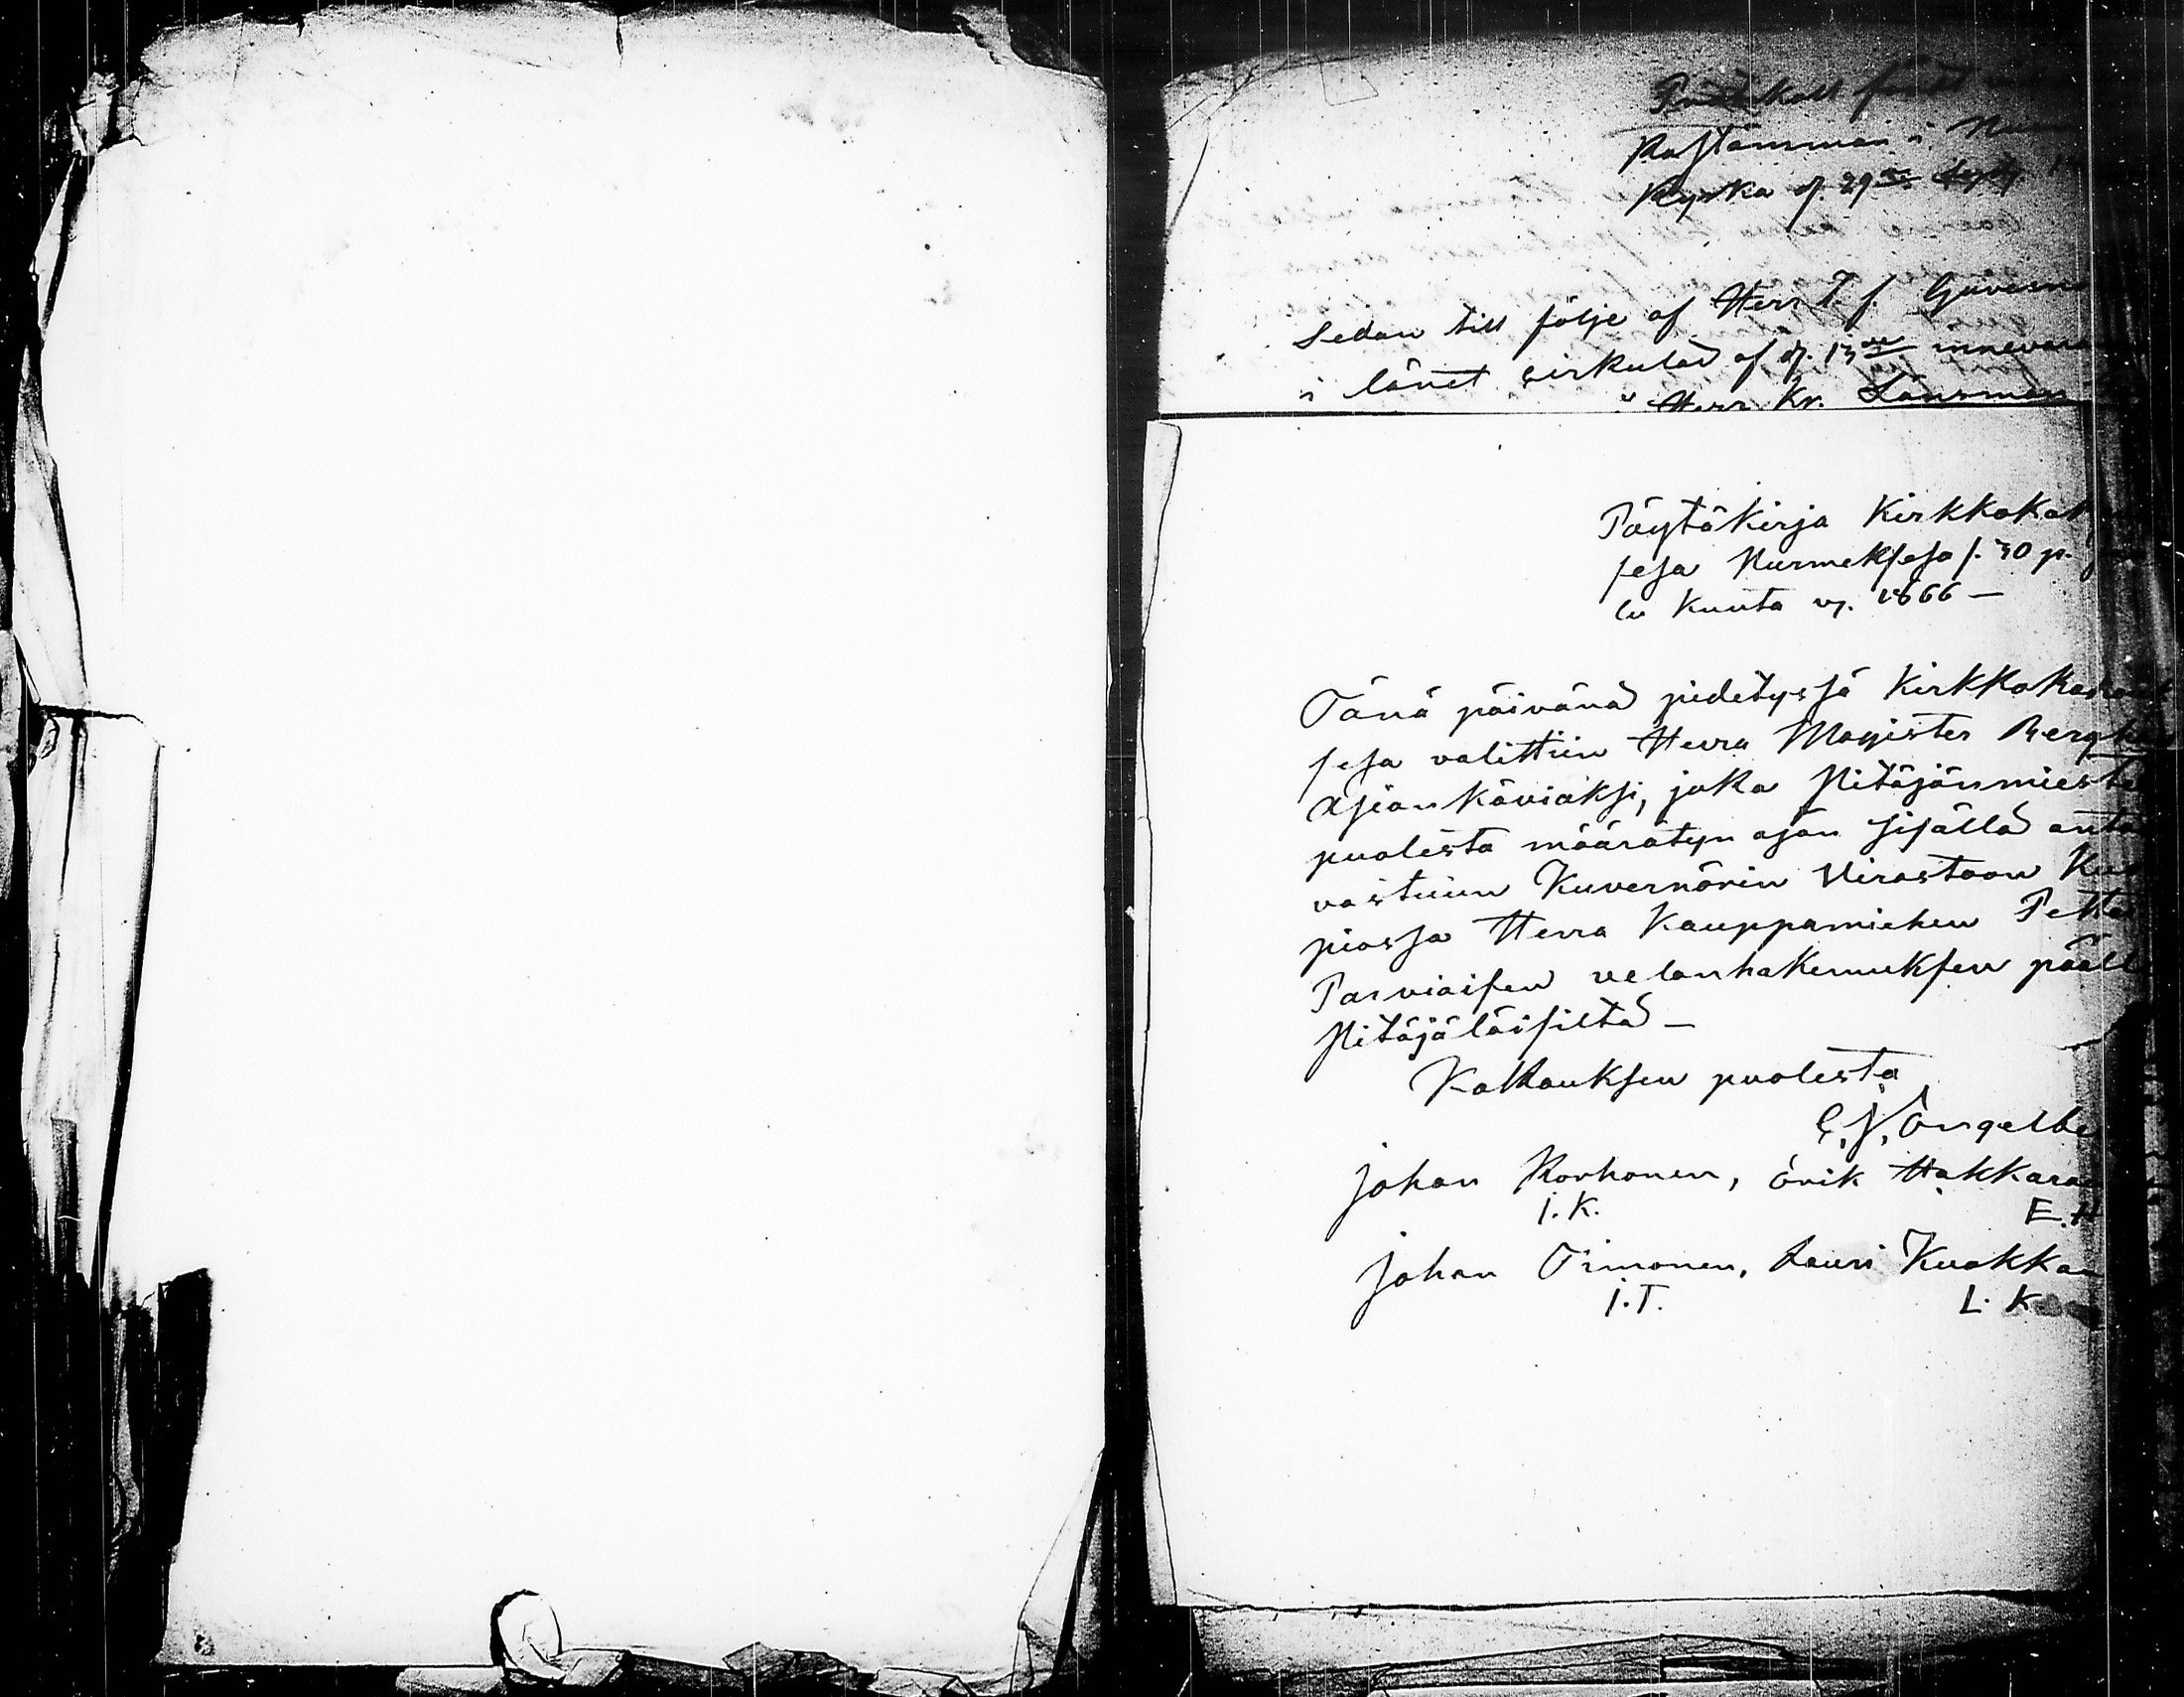 Protokoll fördt
Kastämman i Nur
Kyrka d. 29de Sept 1
Sedan till följe af Herr T. f. Guvern
i länet cirkulär af d. 13de inneva
Herr Kr. Länsman
Pöytäkirja Kirkkokok
sesa Nurmeksesa s. 30 p.
lu Kuuta vj. 1866 —
Tänä päivänä pidetyssä Kirkkokok
sesa valittiin Herra Magister Bergh
Asiankäviäksi, joka Pitäjänmieste
puolesta määrätyn ajan sisällä anta
vastuun Kuvernörin Virastoon Kuo
piossa Herra Kauppamiehen Pette
Parviaisen velanhakemuksen pääll
Pitäjäläisiltä —
Kokouksen puolesta
C. J. Engelbe
Johan Korhonen, Erik Hakkara
J. K. E. H
Johan Timonen, Lauri Kuokka
J. T. L. K